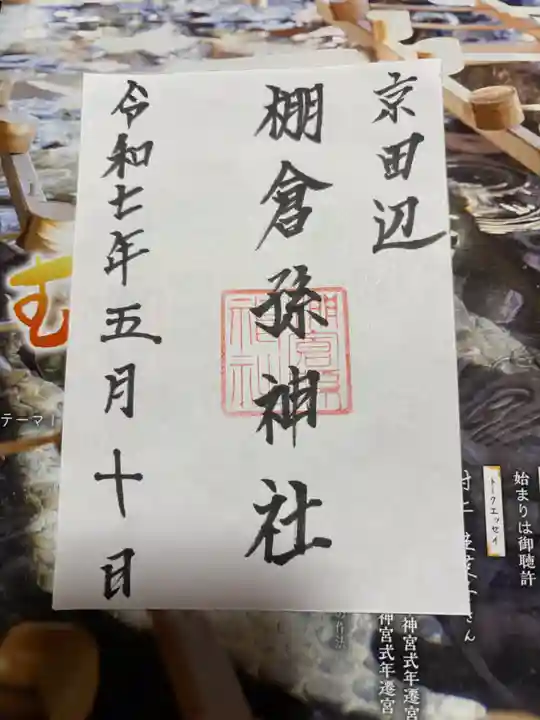 京田辺
棚倉孫神社
令和七年五月十日
む
テーマ
トークエッセイ
始まりは御聴許
神宮式年遷宮
神宮式年遷宮